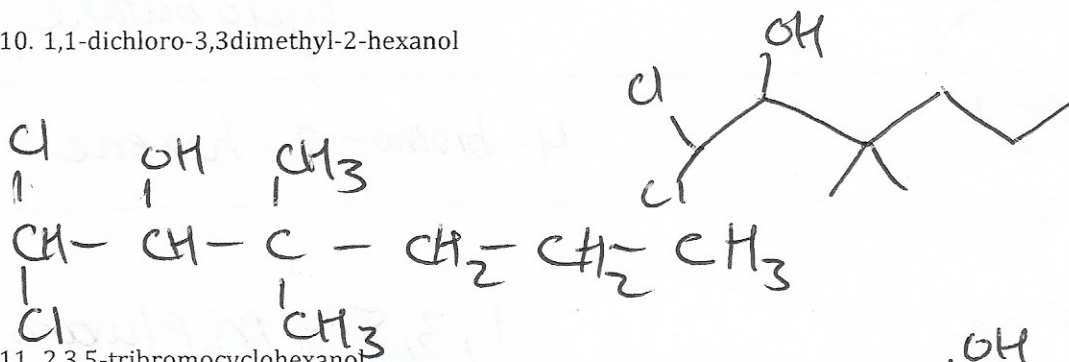 10. 1,1-dichloro-3,3dimethyl-2-hexanol
OH
Cl
Cl
Cl OH CH3
CH- CH- C - CH2- CH2- CH3
Cl CH3
11. 2,3,5-tribromocyclohexanol
OH